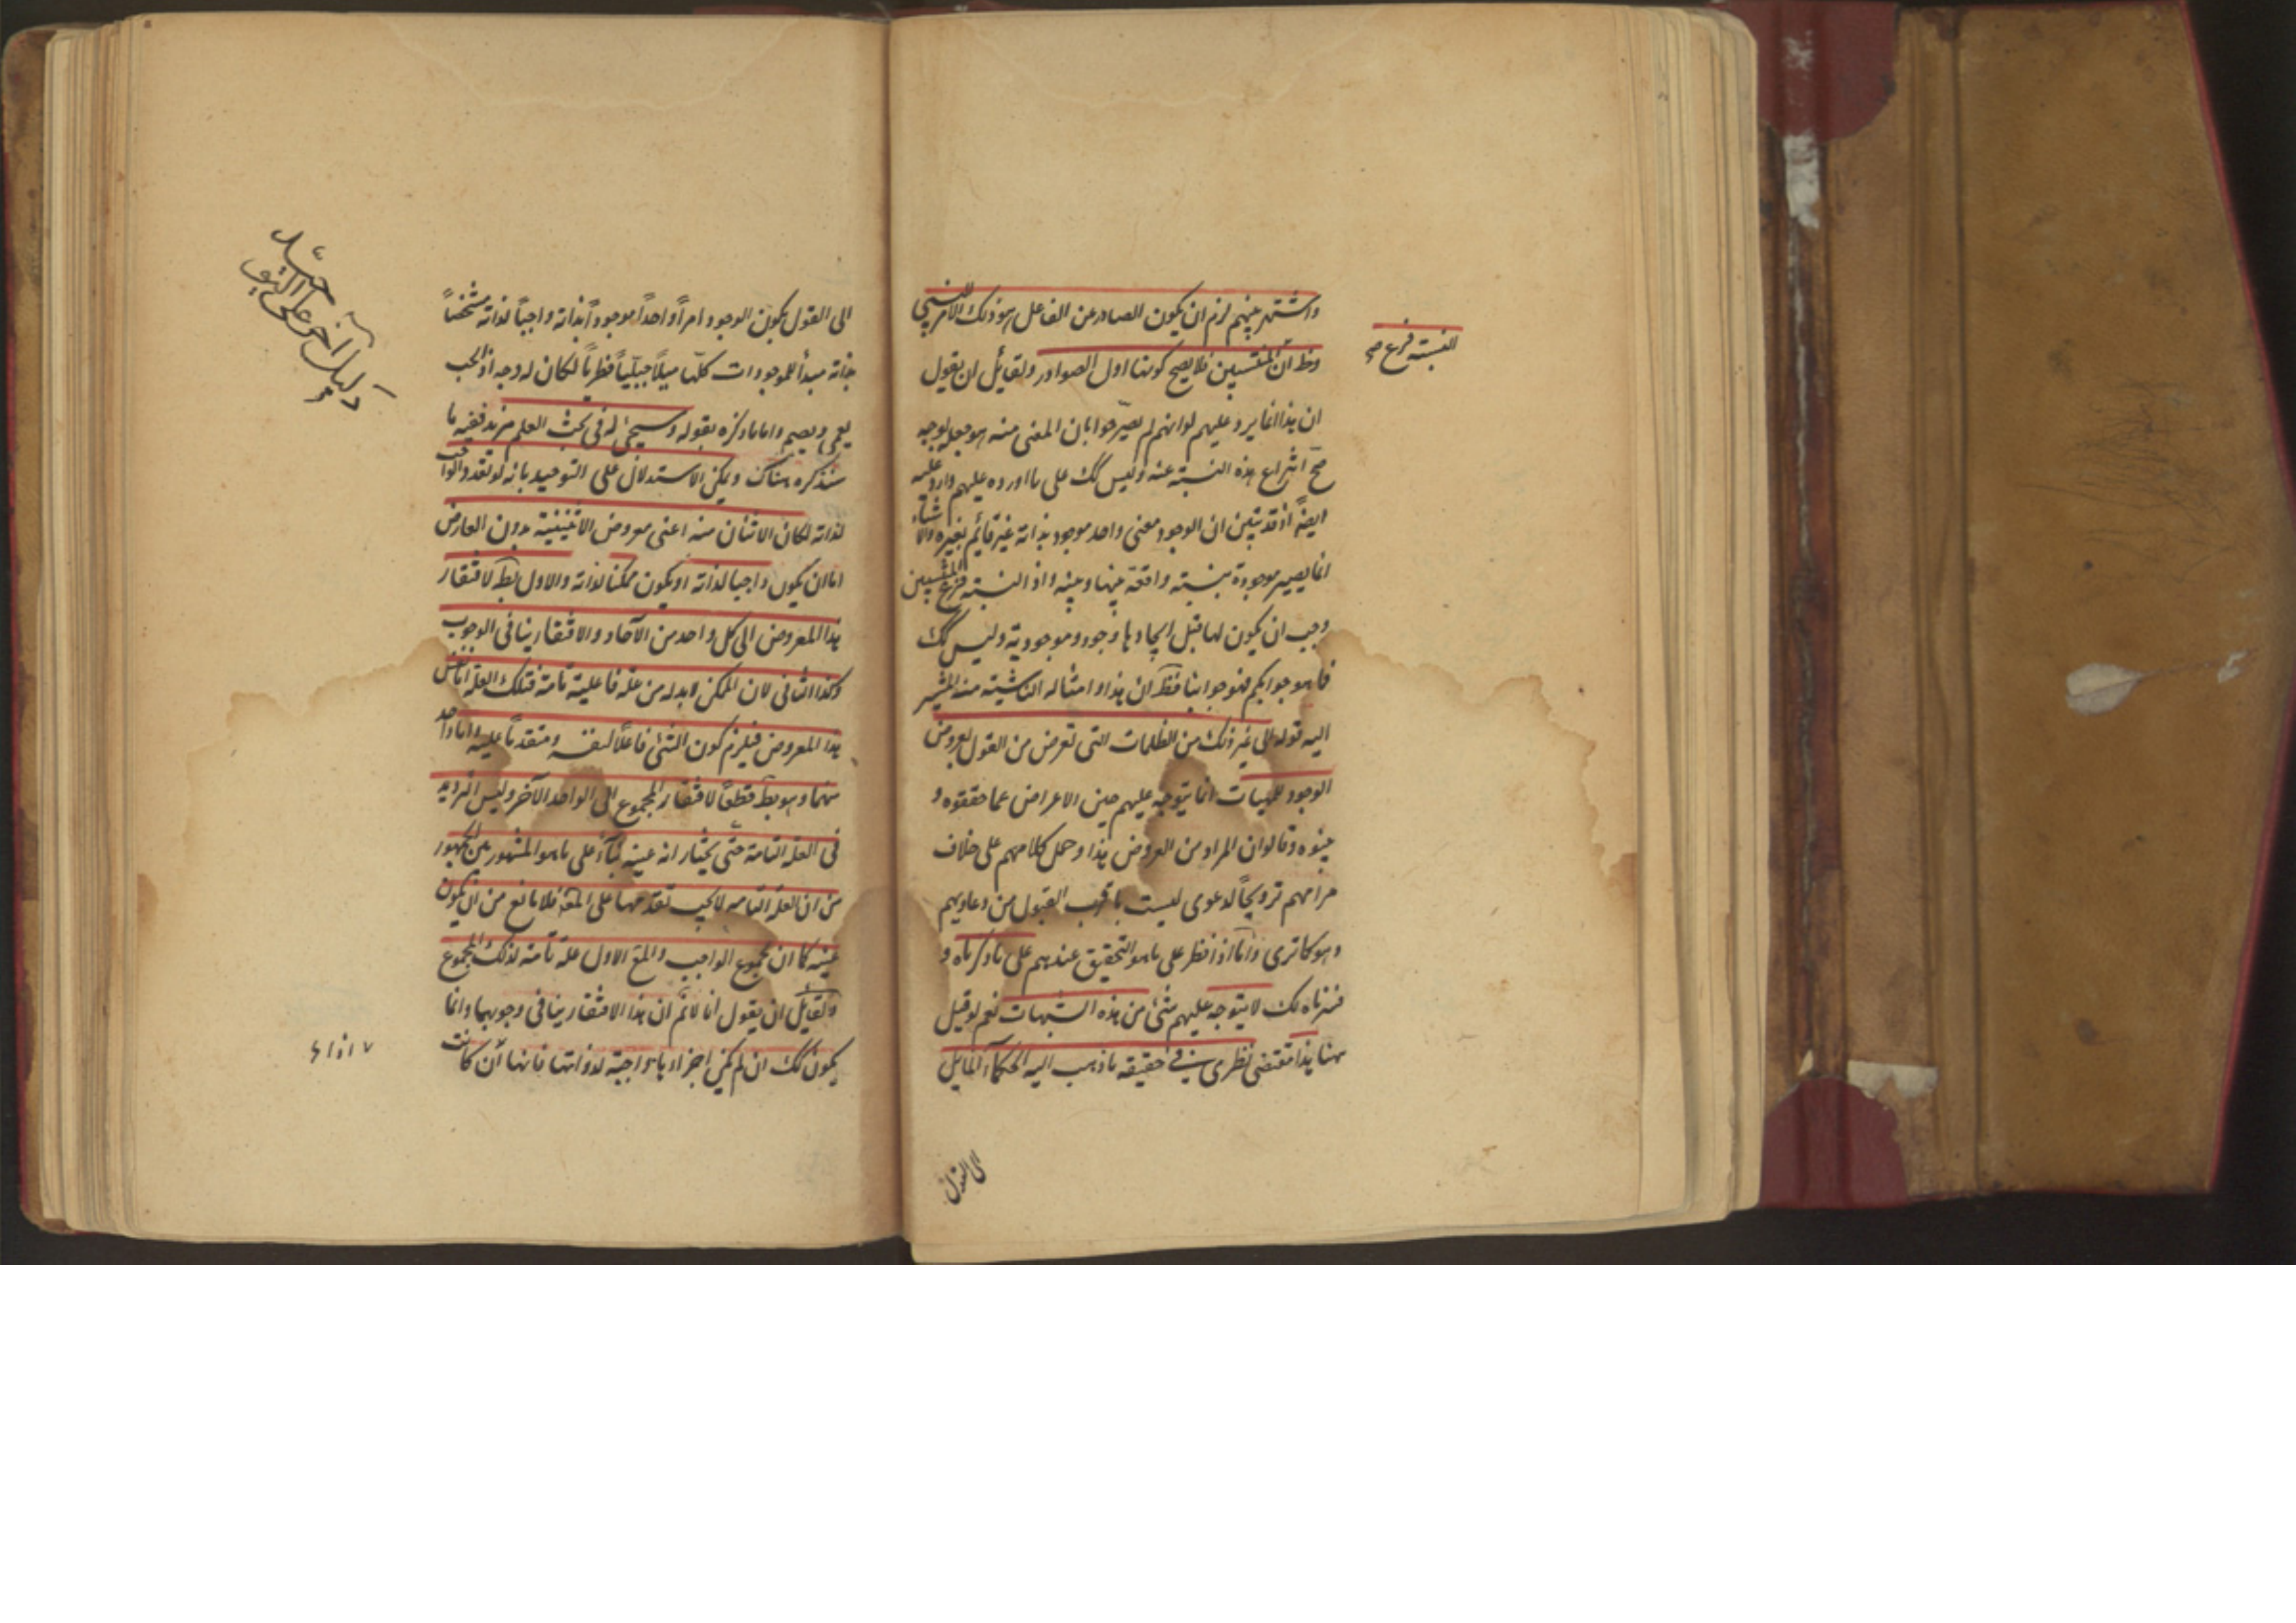 واشتهر بينهم لزم ان يكون الصادر عن الفاعل هو ذلك الامر النسبي
النسبة فرع صح
وظ ان المنتسبين فلا يصح كونها اول الصوادر ولقايل ان يقول
ان هذا انما يرد عليهم لو انهم لم يصرحوا بان المعنى منه هو جعله بوجه
صح انتزاع هذه النسبة عنه وليس كك على ما اورده عليهم وارد عليه
ايضا اذ قد تبين ان الوجود معنى واحد موجود بذاته غير قائم بغيره والاشياء
انما يصير موجودة بنسبته واقعة بينها وبينه واذ النسبة فرع المنتسبين
وجب ان يكون لها قبل ايجادها وجود وموجودية وليس كك
فما هو جوابكم فهو جوابنا فظ ان هذا وامثاله الناشية منه المشير
اليه قوله الى غير ذلك من الظلمات التي تعرض من القول بعروض
الوجود للمهيات انما يتوجه عليهم حين الاعراض عما حققوه و
بينوه وقالوا ان المراد من العروض هذا وحمل كلامهم على خلاف
مرامهم ترويجا لدعوى ليست باقرب القبول من دعاويهم
وهو كما ترى واما اذا نظر على ما هو التحقيق عندهم على ما ذكرناه و
قررناه لك لا يتوجه عليهم شئ من هذه الشبهات نعم لو قيل
ههنا هذا مقتضى نظري في حقيقه ما ذهب اليه الحكماء المايل
الى القول
الى القول بكون الوجود امرا واحدا موجودا بذاته واجبا لذاته متشخصا
بذاته مبدأ للموجودات كلها ميلا جبليا فطريا لكان له وجه اذ الحب
يعمى ويصم واما ما ذكره بقوله وسيجئ له في بحث العلم مزيد ففيه ما
سنذكره هناك ويمكن الاستدلال على التوحيد بانه لو تعدد الواجب
لذاته لكان الاثنان منه اعنى معروض الاثنينية بدون العارض
اما ان يكون واجبا لذاته او يكون ممكنا لذاته والاول بط لافتقار
هذا المعروض الى كل واحد من الآحاد والافتقار ينافى الوجوب
وكذا الثانى لان الممكن لابد له من علة فاعلية تامة فتلك العلة اما نفس
هذا المعروض فيلزم كون الشئ فاعلا لنفسه ومتقدما عليه واما واحد
منهما وهو بط قطعا لافتقار المجموع الى الواحد الآخر وليس الترديد
فى العلة التامة حتى يختار انه عينه بناء على ما هو المشهور عن الجمهور
من ان العلة التامة لا يجب تقدمها على المع فلا مانع من ان يكون
عينه كما ان مجموع الواجب والمع الاول علة تامة لذلك المجموع
ولقايل ان يقول انا لانم ان هذا الافتقار ينافى وجوبهما وانما
يكون كك ان لم يكن اجزاؤها واجبة لذواتها فانها ان كانت
دليل آخر على التو